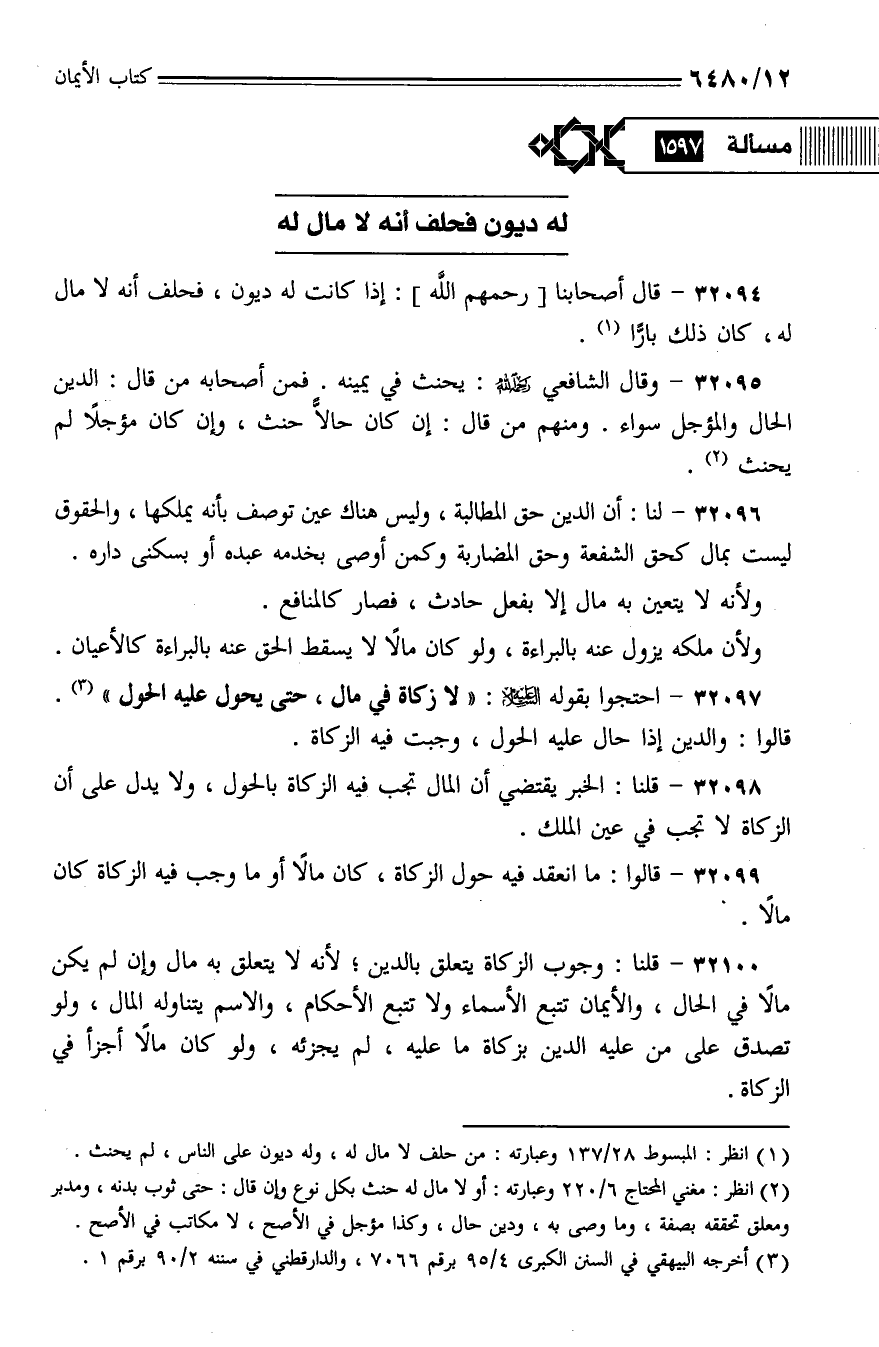 ٦٤٨٠/١٢ كتاب الأيمان
مسألة ١٥٩٧
له ديون فحلف أنه لا مال له
٣٢٠٩٤ - قال أصحابنا [ رحمهم اللَّه ] : إذا كانت له ديون ، فحلف أنه لا مال
له ، كان ذلك بارًّا (١) .
٣٢٠٩٥ - وقال الشافعي رحمه الله : يحنث في يمينه . فمن أصحابه من قال : الدين
الحال والمؤجل سواء . ومنهم من قال : إن كان حالاًّ حنث ، وإن كان مؤجلًا لم
يحنث (٢) .
٣٢٠٩٦ - لنا : أن الدين حق المطالبة ، وليس هناك عين توصف بأنه يملكها ، والحقوق
ليست بمال كحق الشفعة وحق المضاربة وكمن أوصى بخدمه عبده أو بسكنى داره .
ولأنه لا يتعين به مال إلا بفعل حادث ، فصار كالمنافع .
ولأن ملكه يزول عنه بالبراءة ، ولو كان مالًا لا يسقط الحق عنه بالبراءة كالأعيان .
٣٢٠٩٧ - احتجوا بقوله عليه السلام : « لا زكاة في مال ، حتى يحول عليه الحول » (٣) .
قالوا : والدين إذا حال عليه الحول ، وجبت فيه الزكاة .
٣٢٠٩٨ - قلنا : الخبر يقتضي أن المال تجب فيه الزكاة بالحول ، ولا يدل على أن
الزكاة لا تجب في عين الملك .
٣٢٠٩٩ - قالوا : ما انعقد فيه حول الزكاة ، كان مالًا أو ما وجب فيه الزكاة كان
مالًا .
٣٢١٠٠ - قلنا : وجوب الزكاة يتعلق بالدين ؛ لأنه لا يتعلق به مال وإن لم يكن
مالًا في الحال ، والأيمان تتبع الأسماء ولا تتبع الأحكام ، والاسم يتناوله المال ، ولو
تصدق على من عليه الدين بزكاة ما عليه ، لم يجزئه ، ولو كان مالًا أجزأ في
الزكاة .
(١) انظر : المبسوط ١٣٧/٢٨ وعبارته : من حلف لا مال له ، وله ديون على الناس ، لم يحنث .
(٢) انظر : مغني المحتاج ٢٢٠/٦ وعبارته : أو لا مال له حنث بكل نوع وإن قال : حتى ثوب بدنه ، ومدبر
ومعلق تحققه بصفة ، وما وصى به ، ودين حال ، وكذا مؤجل في الأصح ، لا مكاتب في الأصح .
(٣) أخرجه البيهقي في السنن الكبرى ٩٥/٤ برقم ٧٠٦٦ ، والدارقطني في سننه ٩٠/٢ برقم ١ .